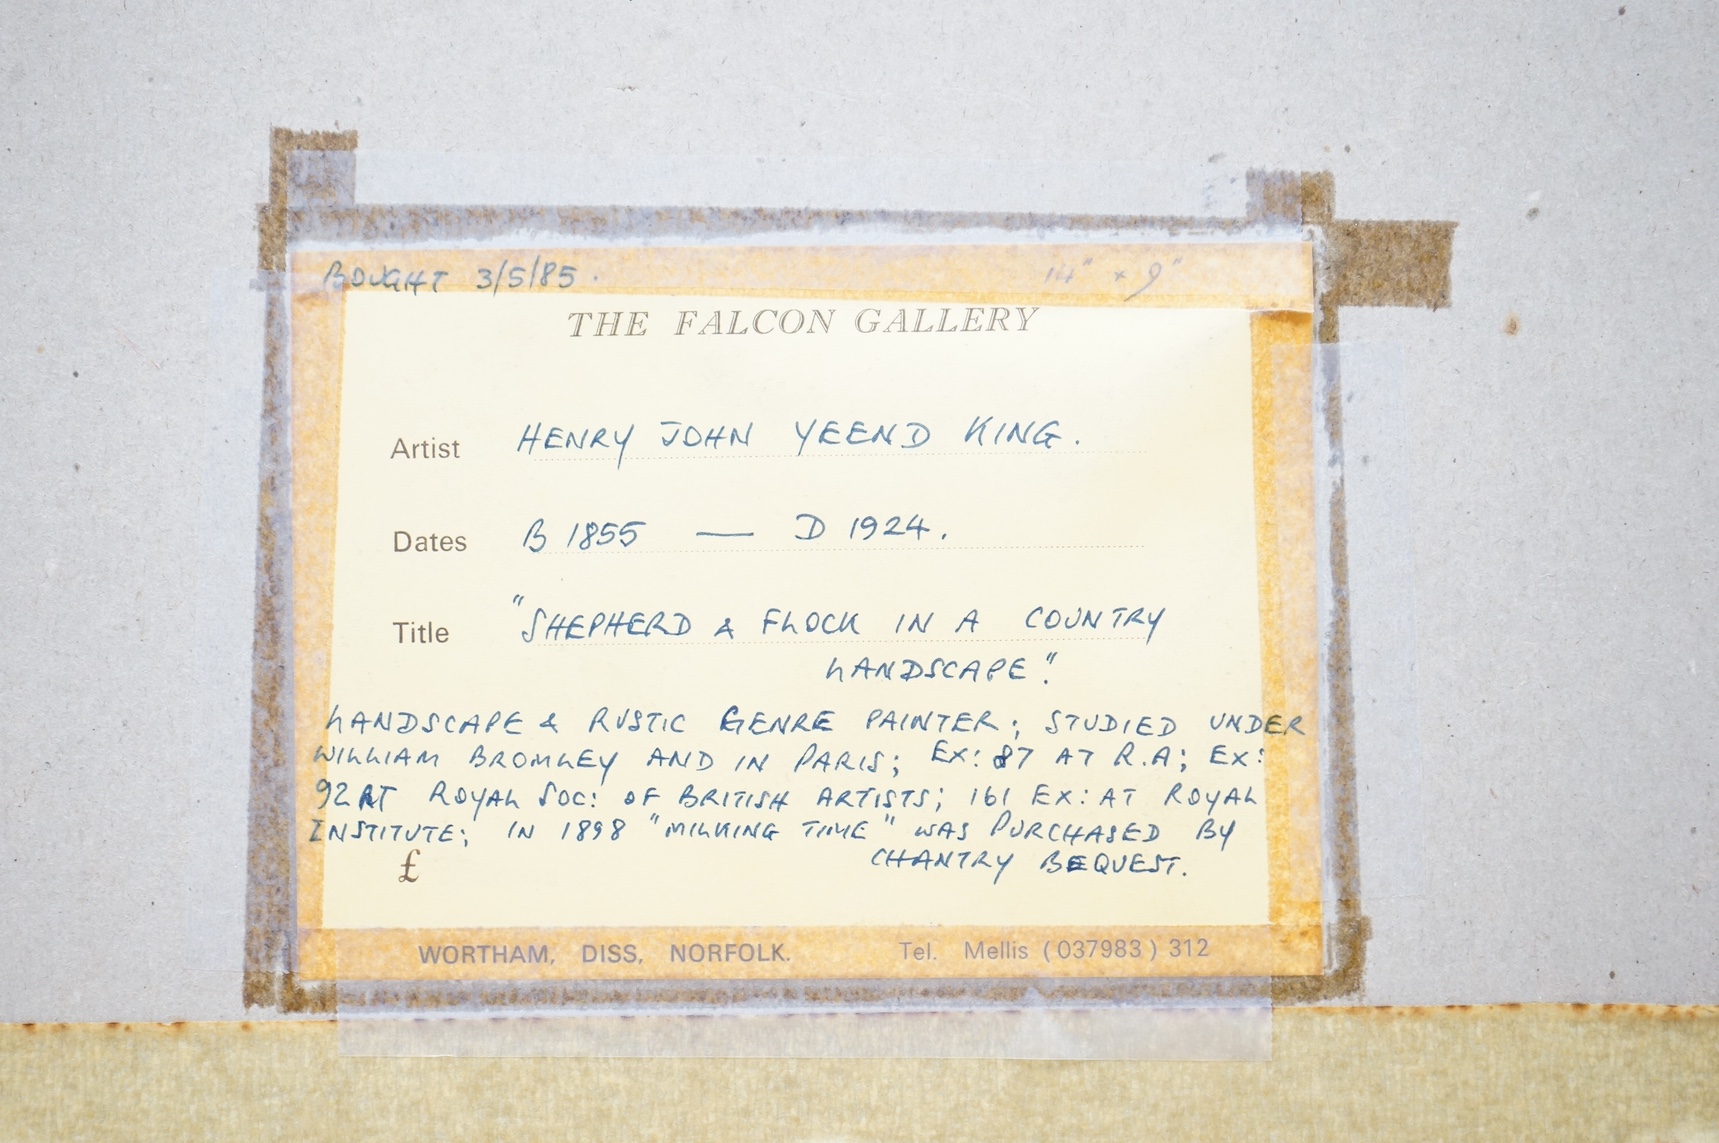 BOUGHT 3/5/85. 14" x 9"
THE FALCON GALLERY
Artist HENRY JOHN YEEND KING.
Dates B 1855 — D 1924.
Title "SHEPHERD & FLOCK IN A COUNTRY
LANDSCAPE".
LANDSCAPE & RUSTIC GENRE PAINTER; STUDIED UNDER
WILLIAM BROMLEY AND IN PARIS; EX: 87 AT R.A; EX:
92 AT ROYAL SOC: OF BRITISH ARTISTS; 161 EX: AT ROYAL
INSTITUTE; IN 1898 "MILKING TIME" WAS PURCHASED BY
£ CHANTRY BEQUEST.
WORTHAM, DISS, NORFOLK. Tel. Mellis (037983) 312